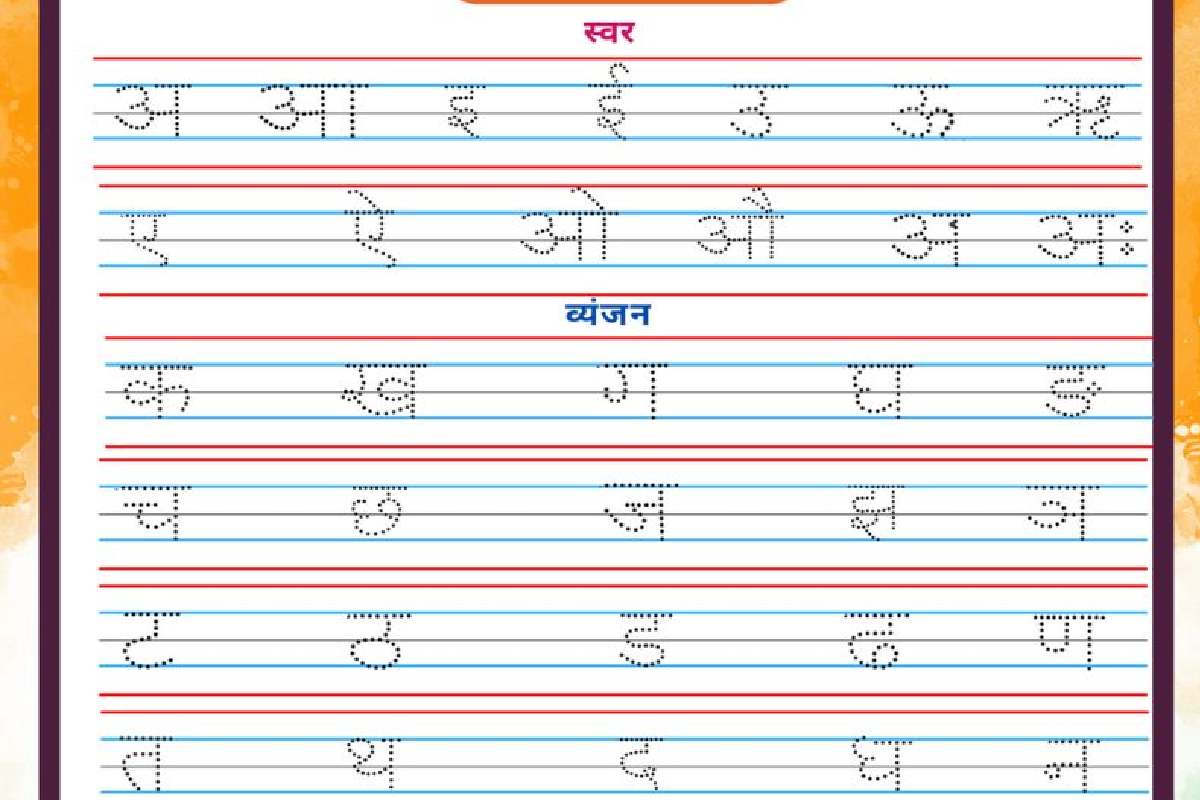 स्वर
अ आ इ ई उ ऊ ऋ
ए ऐ ओ औ अं अः
व्यंजन
क ख ग घ ङ
च छ ज झ ञ
ट ठ ड ढ ण
त थ द ध न